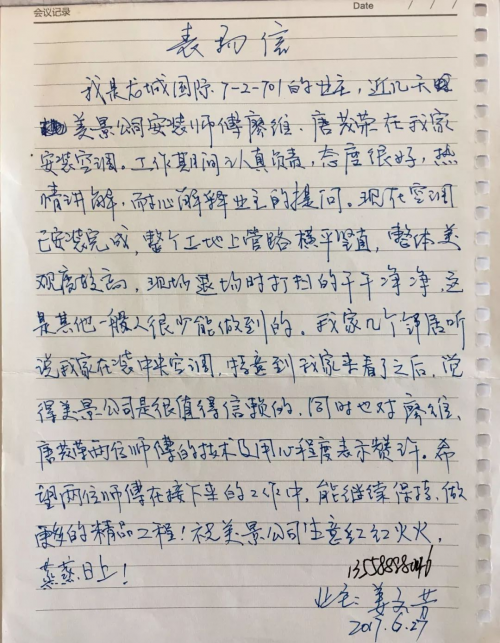 会议记录 Date / / /
表扬信
我是龙城国际7-2-701的业主,近几天
美景公司安装师傅磨维、唐茂荣在我家
安装空调。工作期间认真负责,态度很好,热
情讲解,耐心解释业主的提问。现在空调
已安装完成,整个工地上管路横平竖直,整体美
观度较高,现场退场时打扫的干干净净,这
是其他一般人很少能做到的。我家几个邻居听
说我家在装中央空调,特意到我家来看了之后,觉
得美景公司是很值得信赖的,同时也对磨维、
唐茂荣两位师傅的技术及用心程度表示赞许。希
望两位师傅在接下来的工作中,能继续保持,做
更好的精品工程!祝美景公司生意红红火火,
蒸蒸日上!
业主:姜文芳
2017.6.27